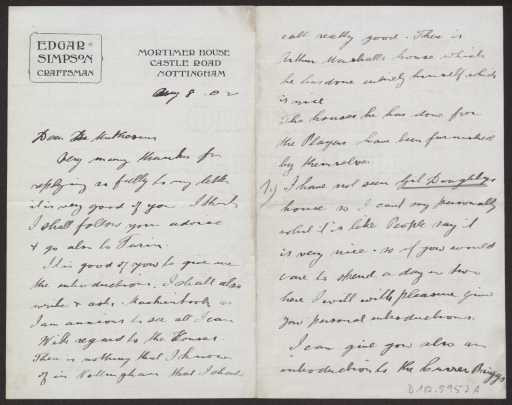 EDGAR
SIMPSON
CRAFTSMAN
MORTIMER HOUSE
CASTLE ROAD
NOTTINGHAM
Aug 8. 02
Dear
Very many thanks for
replying so fully to my letter
it is very good of you I think
I shall follow your advice
& go also to Turin.
It is good of you to give me
the introductions. I shall also
write & ask
I am anxious to see all I can
With regard to the Houses.
There is nothing that I know
of in Nottingham that I should
call really good. There is
Arthur Marshalls house which
he has done entirely himself which
is nice
The houses he has done for
the Players have been furnished
by themselves.
I have not seen Doughtys
house so I can't say personally
what it's like People say it
is very nice. so if you would
care to spend a day or two
here I will with pleasure give
you personal introductions.
I can give you also an
introduction to the Currer Briggs